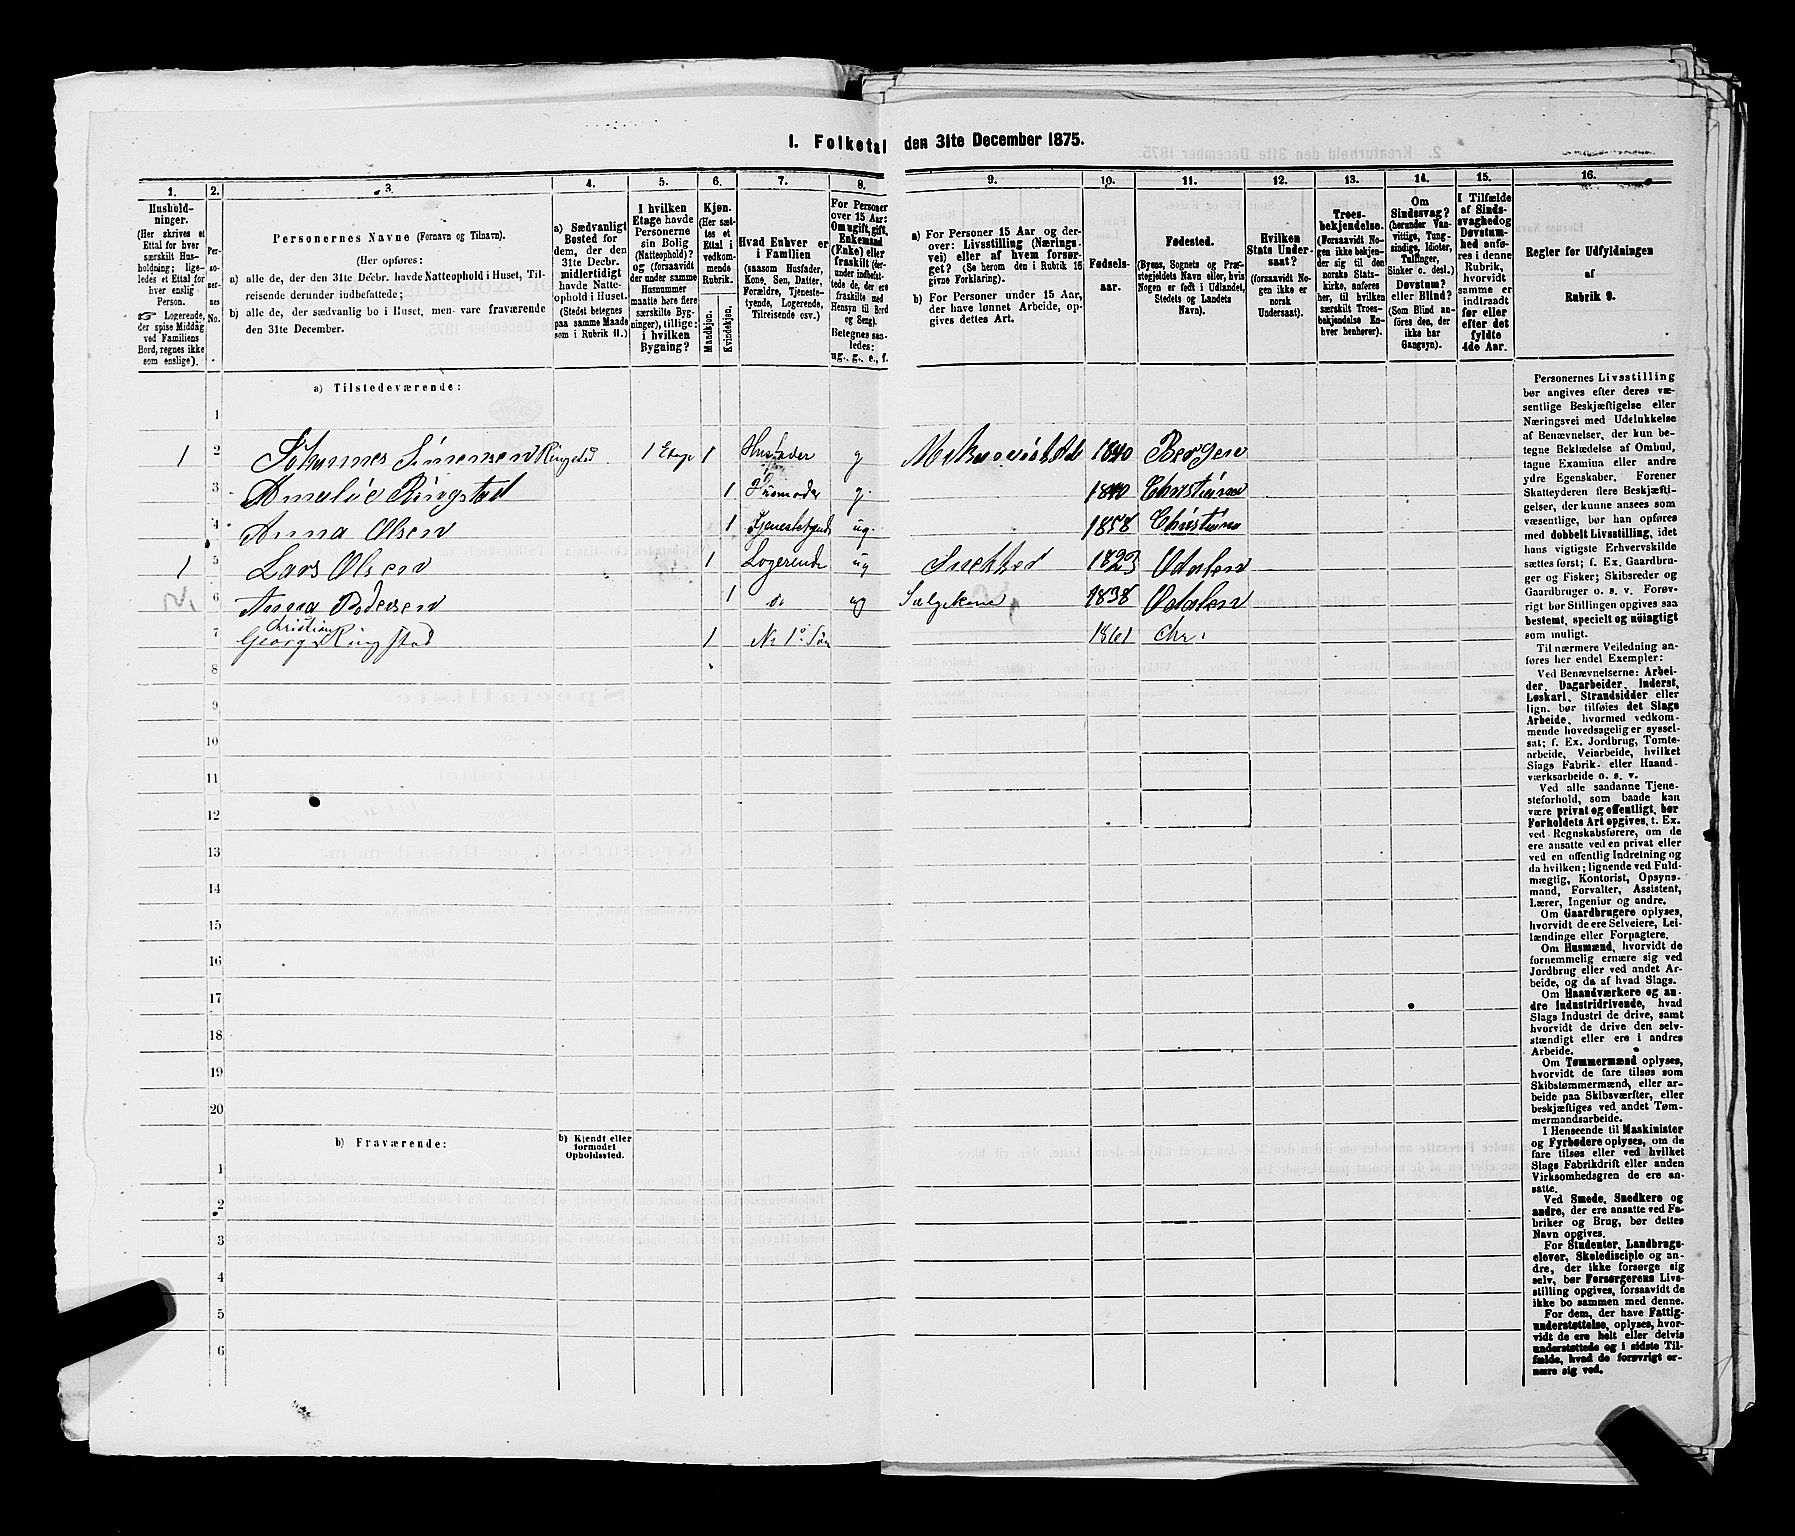 1. Folketal den 31te December 1875.
1.
2.
3.
4.
5.
6.
7.
8.
9.
10.
11.
12.
13.
14.
15.
16.
Hushold-
ninger.
(Her skrives et
Ettal for hver
særskilt Hus-
holdning; lige-
ledes et Ettal for
hver enslig
Person.
☞ Logerende,
der spise Middag
ved Familiens
Bord, regnes ikke
som enslige).
Per-
so-
ner-
nes
No.
Personernes Navne (Fornavn og Tilnavn).
(Her opføres:
a) alle de, der den 31te Decbr. havde Natteophold i Huset, Til-
reisende derunder indbefattede;
b) alle de, der sædvanlig bo i Huset, men vare fraværende
den 31te December.
a) Sædvanligt
Bosted for
dem, der den
31te Decbr.
midlertidigt
havde Natte-
ophold i Huset.
(Stedet betegnes
paa samme Maade
som i Rubrik 11.)
I hvilken
Etage havde
Personerne
sin Bolig
(Natteophold)?
og (forsaavidt
der under samme
Husnummer
maatte høre flere
særskilte Byg-
ninger), tillige:
i hvilken
Bygning?
Kjøn.
(Her sæt-
tes et
Ettal i
vedkom-
mende
Rubrik.
Mandkjøn.
Kvindekjøn.
Hvad Enhver er
i Familien
(saasom Husfader,
Kone, Søn, Datter,
Forældre, Tjeneste-
tyende, Logerende,
Tilreisende osv.)
For Personer
over 15 Aar:
Om ugift, gift,
Enkemand
(Enke) eller
fraskilt (der-
under indbefat-
tede de, der ere
fraskilte med
Hensyn til Bord
og Seng).
Betegnes saa-
ledes:
ug., g., e., f.
a) For Personer 15 Aar og der-
over: Livsstilling (Nærings-
vei) eller af hvem forsør-
get? (Se herom den i Rubrik 16
givne Forklaring).
b) For Personer under 15 Aar,
der have lønnet Arbeide, op-
gives dettes Art.
Fødsels-
aar.
Fødested.
(Byens, Sognets og Præ-
stegjeldets Navn eller, hvis
Nogen er født i Udlandet,
Stedets og Landets
Navn).
Hvilken
Stats Under-
saat?
(forsaavidt No-
gen ikke er
norsk
Undersaat).
Troes-
bekjendelse.
(Forsaavidt No-
gen ikke bekjen-
der sig til den
norske Stats-
kirke, anføres
her, til hvilken
særskilt Troes-
bekjendelse En-
hver henhører).
Om
Sindssvag?
(herunder Van-
vittige, Tung-
sindige, Idioter,
Tullinger,
Sinker o. desl.)
Døvstum?
eller Blind?
(Som Blind an-
føres den, der
ikke har
Gangsyn).
I Tilfælde
af Sinds-
svaghed og
Døvstum-
hed anfø-
res i denne
Rubrik,
hvorvidt
samme er
indtraadt
før eller
efter det
fyldte
4de Aar.
Regler for Udfyldningen
af
Rubrik 9.
a) Tilstedeværende:
1
1 2 Johannes Simensen Ringstad 1 Etage 1 Husfader g 1840 Bergen
3 Amalie Ringstad 1 Husmoder g. 1840 Christiania
4 Anna Olsen 1 Tjenestetyende ug. 1858 Christiania
1 5 Lars Olsen 1 Logerende ug Snekker 1823 Odalen
6 Anna Pedersen 1 do ug Sælgekone 1838 Odalen
Christian
7 Georg Ringstad 1 No 1s Søn 1861 Chr.
8
9
10
11
12
13
14
15
16
17
18
19
20
b) Fraværende:
b) Kjendt eller
formodet
Opholdssted.
1
2
3
4
5
6
Personernes Livsstilling
bør angives efter deres væ-
sentlige Beskjæftigelse eller
Næringsvei med Udelukkelse
af Benævnelser, der kun be-
tegne Beklædelse af Ombud,
tagne Examina eller andre
ydre Egenskaber. Forener
Skatteyderen flere Beskjæfti-
gelser, der kunne ansees som
væsentlige, bør han opføres
med dobbelt Livsstilling, idet
hans vigtigste Erhvervskilde
sættes først; f. Ex. Gaardbru-
ger og Fisker; Skibsreder og
Gaardbruger o. s. v. Forøv-
rigt bør Stillingen opgives saa
bestemt, specielt og nøiagtigt
som muligt.
Til nærmere Veiledning an-
føres her endel Exempler:
Ved Benævnelserne: Arbei-
der, Dagarbeider, Inderst,
Løskarl, Strandsidder eller
lign. bør tilføies det Slags
Arbeide, hvormed vedkom-
mende hovedsagelig er syssel-
sat; f. Ex. Jordbrug, Tomte-
arbeide, Veiarbeide, hvilket
Slags Fabrik- eller Haand-
værksarbeide o. s. v.
Ved alle saadanne Tjene-
steforhold, som baade kan
være privat og offentligt, bør
Forholdets Art opgives, t. Ex.
ved Regnskabsførere, om de
ere ansatte ved en privat eller
ved en offentlig Indretning og
da hvilken; lignende ved Fuld-
mægtig, Kontorist, Opsyns-
mand, Forvalter, Assistent,
Lærer, Ingeniør og andre.
Om Gaardbrugere oplyses,
hvorvidt de ere Selveiere, Lei-
lændinge eller Forpagtere.
Om Husmænd, hvorvidt de
fornemmelig ernære sig ved
Jordbrug eller ved andet Ar-
beide, og da af hvad Slags.
Om Haandværkere og an-
dre Industridrivende, hvad
Slags Industri de drive, samt
hvorvidt de drive den selv-
stændigt eller ere i andres
Arbeide.
Om Tømmermænd oplyses,
hvorvidt de fare tilsøs som
Skibstømmermænd, eller ar-
beide paa Skibsværfter, eller
beskjæftiges ved andet Tøm-
mermandsarbeide.
I Henseende til Maskinister
og Fyrbødere oplyses, om de
fare tilsøs eller ved hvilket
Slags Fabrikdrift eller anden
Virksomhedsgren de ere an-
satte.
Ved Smede, Snedkere og
andre, der ere ansatte ved Fa-
briker og Brug, bør dettes
Navn opgives.
For Studenter, Landbrugs-
elever, Skoledisciple og an-
dre, der ikke forsørge sig
selv, bør Forsørgerens Livs-
stilling opgives, forsaavidt de
ikke bo sammen med denne.
For dem, der have Fattig-
understøttelse, oplyses, hvor-
vidt de ere helt eller delvis
understøttede og i sidste Til-
fælde, hvad de forøvrigt er-
nære sig ved.